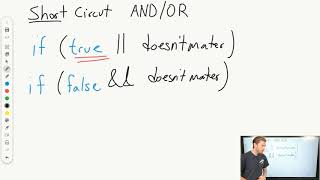 Short Circut AND/OR
if (true || doesn't mater)
if (false && doesn't mater)